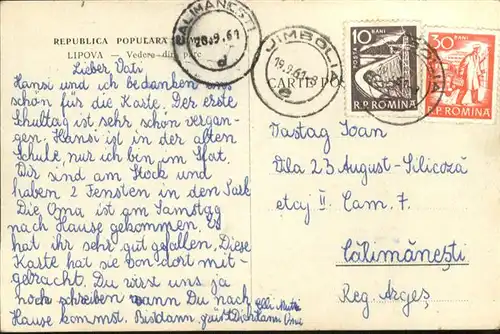 REPUBLICA POPULARA
LIPOVA — Vedere din parc
CARTE PO
CALIMANEȘTI
20.9.61
d
JIMBOLIA
19.9.61-8
e
10 BANI
POSTA
R.P. ROMINA
30 BANI
R.P. ROMINA
Lieber Vati
Hansi und ich bedanken uns
schön für die Karte. Der erste
Schultag ist sehr schön vergan-
gen. Hansi ist in der alten
Schule, nur ich bin im Sfat.
Dir sind am Stock und
haben 2 Fensten in den Park
Die Oma ist am Samstag
nach Hause gekommen. Es
hat ihr sehr gut gefallen. Diese
Karte hat sie von dort mit-
gebracht. Du wirst uns ja
noch schreiben wann Du nach
Hause kommst. Bis dann grüßt Dich Hansi Oma
Elli Mutti
Tastag Ioan
Vila 23 August-Silicoză
etaj II Cam. 7.
Călimănești
Reg. Argeș